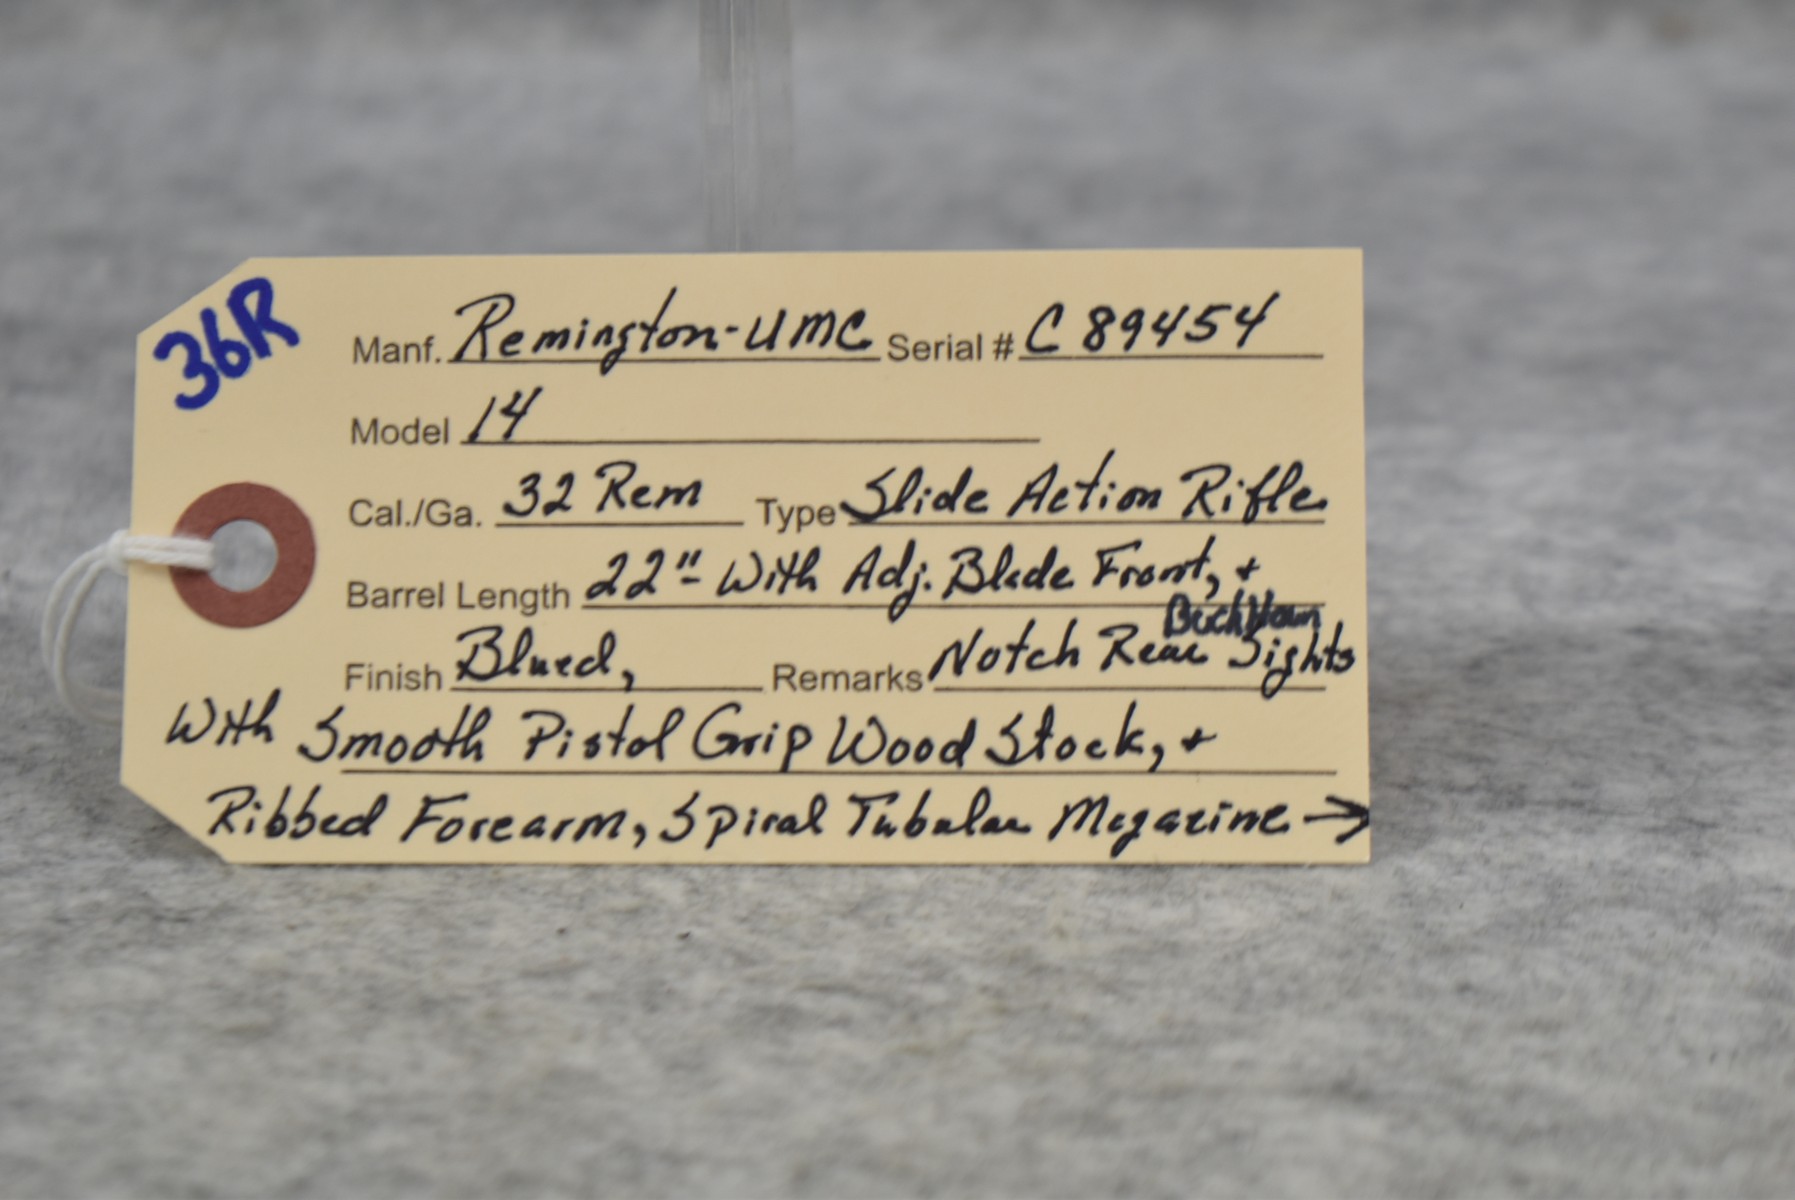 36R
Manf. Remington-UMC Serial # C 89454
Model 14
Cal./Ga. 32 Rem Type Slide Action Rifle
Barrel Length 22"- With Adj. Blade Front, +
BuckHorn
Finish Blued, Remarks Notch Rear Sights
With Smooth Pistol Grip Wood Stock, +
Ribbed Forearm, Spiral Tubular Magazine →